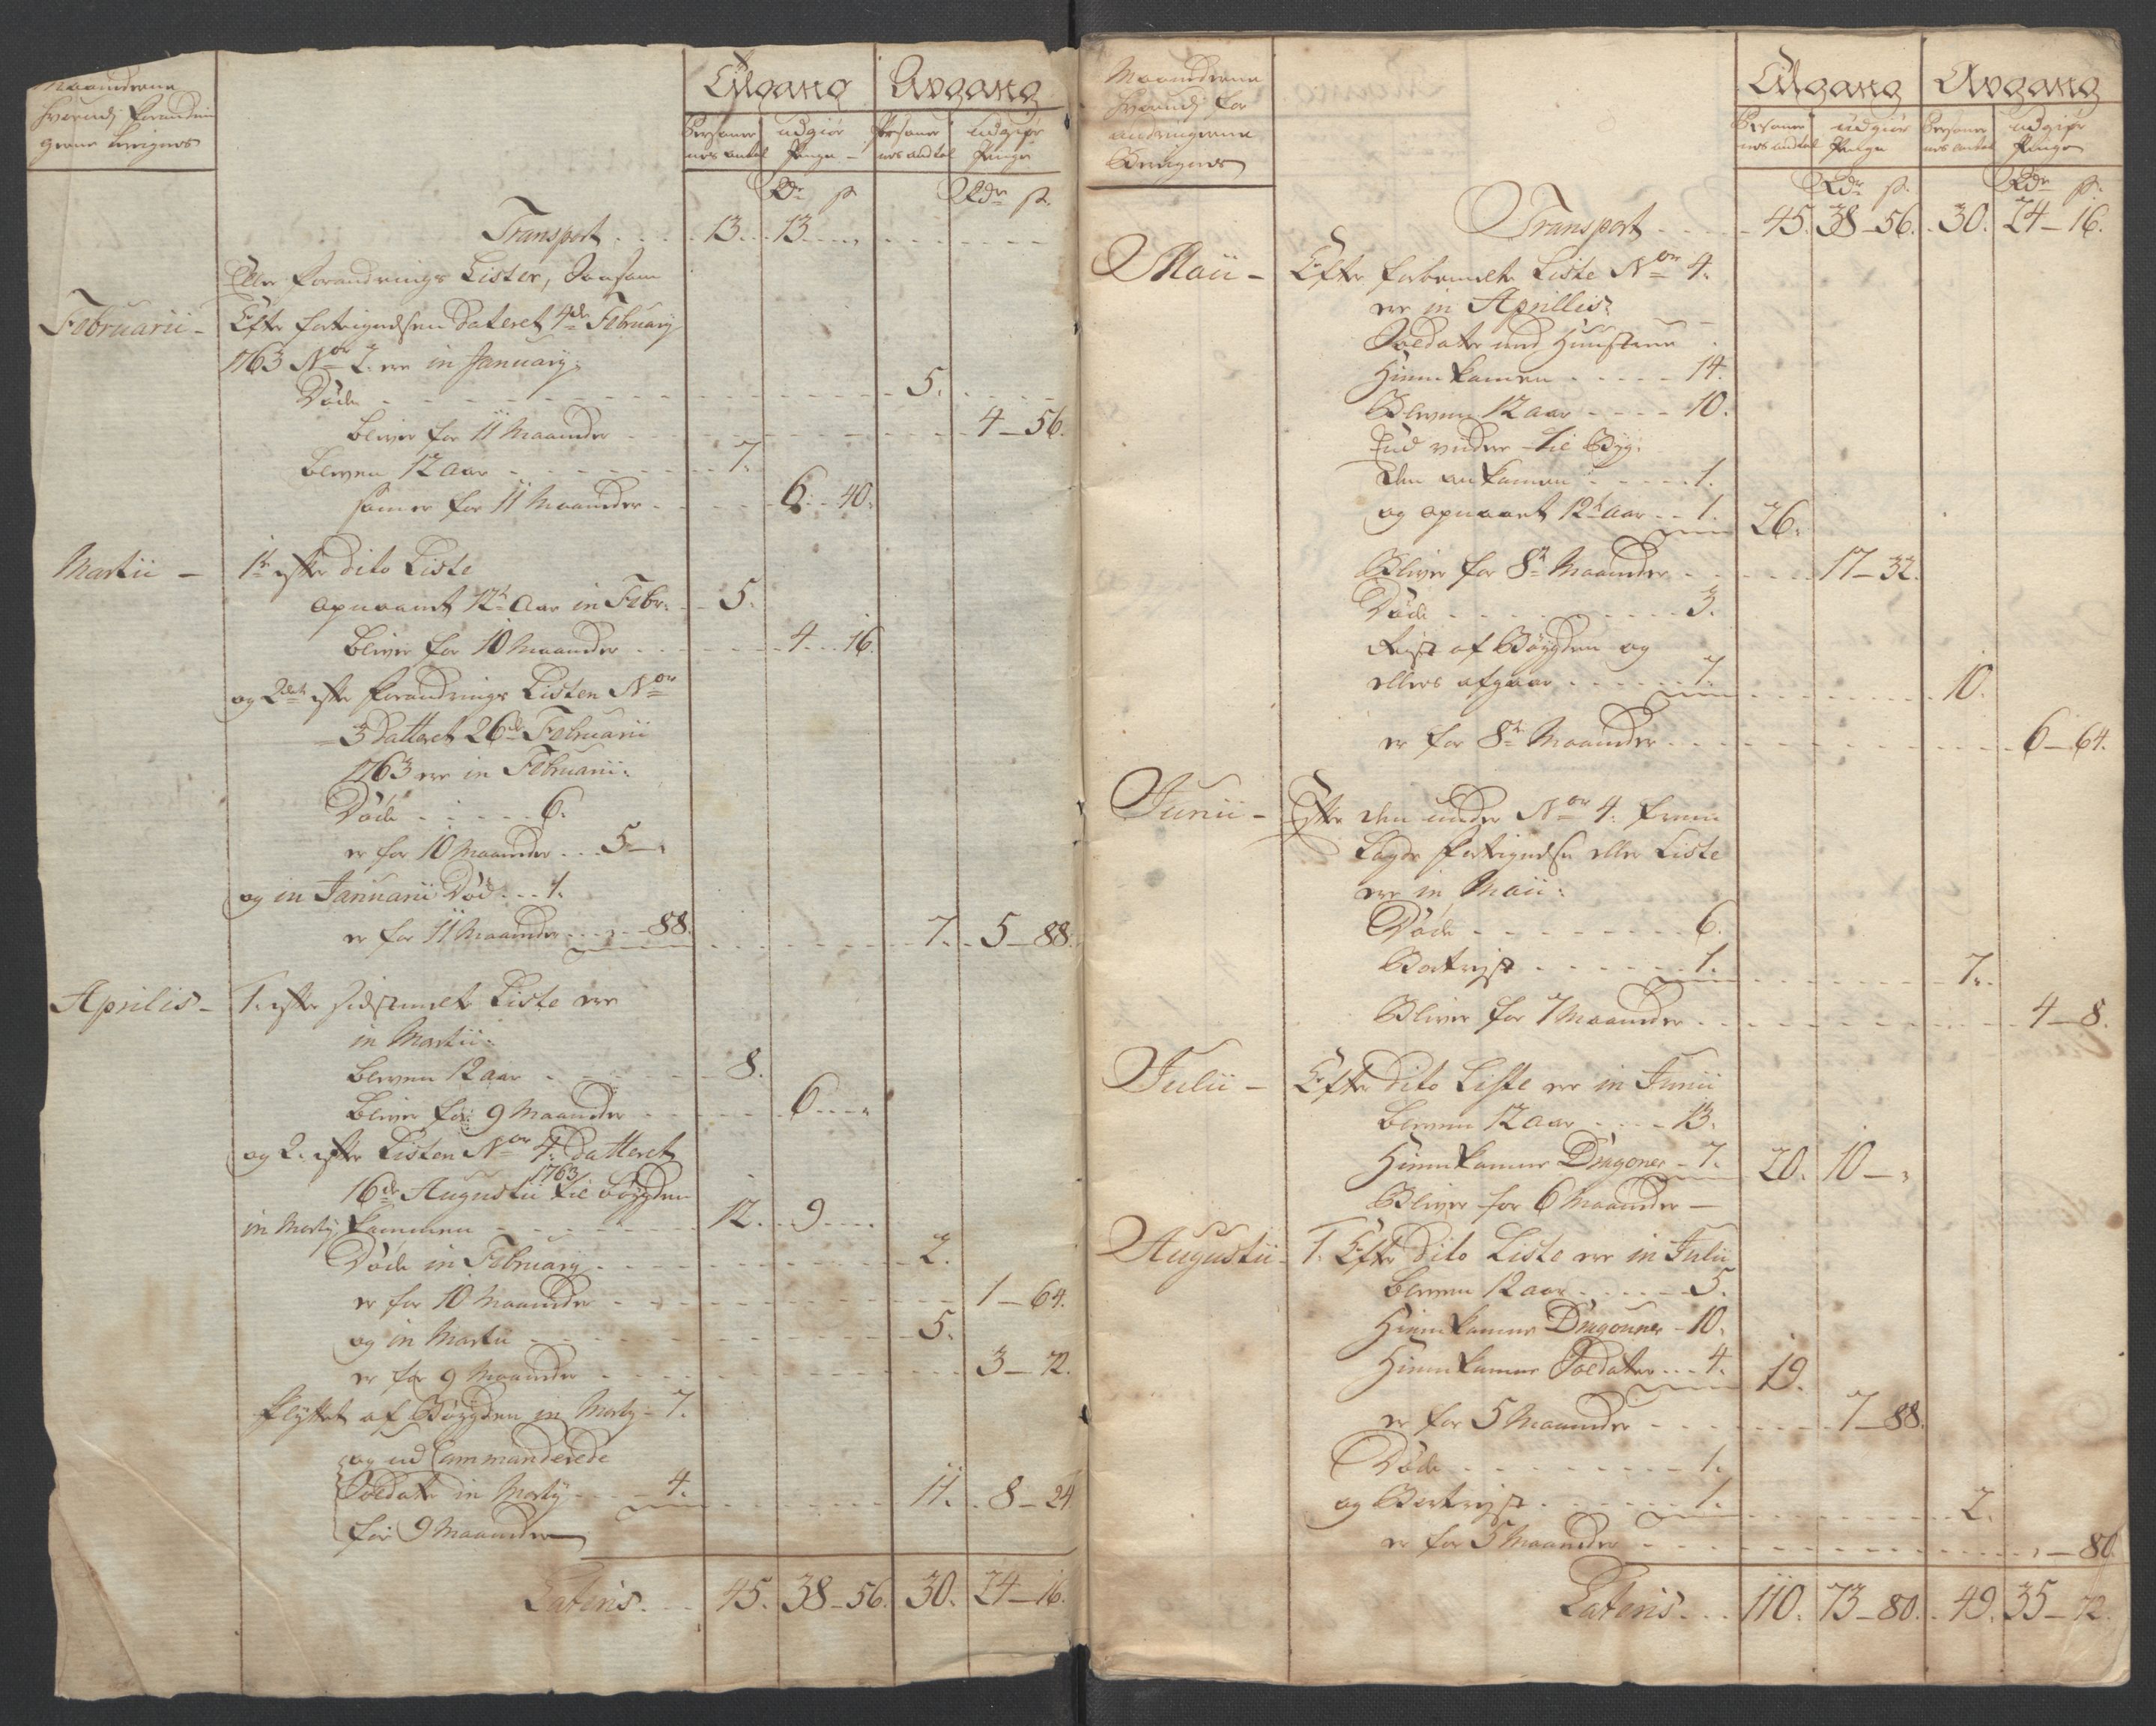 Maanderne
hvorudj forandrin
gerne beregnes
Tilgang Avgang
Personer udgiør Persone udgiør
nes antal Penge nes andtal Penge
Rdr ß Rdr ß
Transport 13. 13
Eller forandrings Lister, Saasom
Februarii - Efter fortegnelsen Dateret 4de February
1763 Nor 2. ere in January:
Døde 5.
bliver for 11 Maander 4 - 56.
bleven 12 aar 7.
som er for 11 Maander 6 - 40.
Martii - 1te efter dito Liste
opnaaet 12te Aar in Febr: 5.
bliver for 10 Maander 4 - 16.
og 2det efter forandrings Listen Nor
3 Datteret 26de Februarii
1763 ere in Februarii:
Døde 6.
er for 10 Maander 5 -
og in Januarii Død 1.
er for 11 Maander 88. 7. 5 - 88.
Aprilis - 1. efter sidstmelte Liste ere
in Martii:
bleven 12 aar 8.
bliver for 9 Maander 6
og 2. efter Listen Nor 4. Datteret
16de Augustii 1763 til bøygden
in Marty kommen 12. 9
Døde in February 2.
er for 10 Maander 1 - 64.
og in Martii 5.
er for 9 Maander 3 - 72.
flyttet af Bøygden in Marty - 7.
og ud Commanderede
Soldater in Marty 4. 11. 8 - 24
for 9 Maander
Lateris 45. 38 - 56. 30. 24 - 16.
Maanderne
hvorudj for
andringerne
Beregnes
Tilgang Avgang
Personer udgiør Persone udgiør
nes andtal Penge nes antal Penge
Rdr ß. Rdr ß.
Transport 45. 38 - 56. 30. 24 - 16.
Maii - Efter forbemelte Liste Nor 4.
ere in Aprillis:
Soldater med Hustruer
Hiemkomen 14.
Bleven 12 aar 10.
Ind til Byg:
den ankomen 1.
og opnaaet 12te Aar 1. 26.
Bliver for 8te Maander 17 - 32.
Døde 3.
Reist af Bøygden og
ellers afgaar 7. 10.
er for 8te Maander 6 - 64.
Junii - Efter den under Nor 4. frem
lagde fortegnelse eller Liste
ere in Maii:
Døde 6.
Bortreist 1. 7.
Bliver for 7 Maander 4 - 8.
Julii - Efter Dito Liste ere in Junii
bleven 12 aar 13.
Hiemkomne Dragoner - 7. 20. 10 -
Bliver for 6 Maander -
Augustii - 1. Efter Dito Liste ere in Julii
bleven 12 aar 5.
Hiemkomne Dragouner - 10.
Hiemkomne Soldater 4. 19.
er for 5 Maander 7 - 88.
Døde 1.
og Bortreist 1. 2.
er for 5 Maander - 80.
Lateris 110. 73 - 80. 49. 35 - 72.